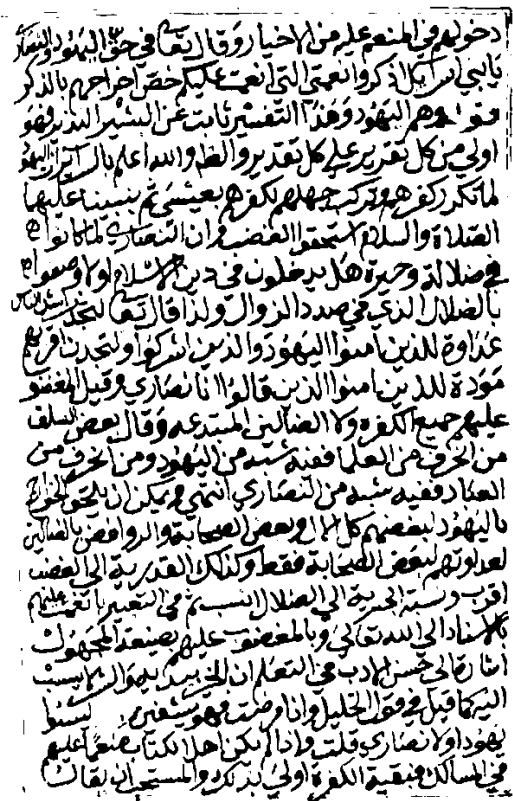 دخولهم في المنعم عليه من الاخيار وقال تعالى في حق اليهود والنصارى
يابني اسرائيل اذكروا نعمتي التي انعمت عليكم خص اخراجهم بالذكر
وهم اليهود وهذا التفسير ثابت عن البشير النذير فهو
اولى من كل تقدير على كل تقدير والله اعلم بالسرائر اليهود
لما تكرر كفرهم وتركب جهلهم بكفرهم بعيسى ثم بنبينا عليهما
الصلاة والسلام استحقوا الغضب وان النصارى لما كانوا
في ضلالة وحيرة هل يدخلون في دين الاسلام اولا وصفوا
بالضلال الذي في صدد الزوال ولذا قال تعالى لتجدن اشد الناس
عداوة للذين امنوا اليهود والذين اشركوا ولتجدن اقربهم
مودة للذين امنوا الذين قالوا انا نصارى وقيل المغضوب
عليهم جميع الكفرة ولا الضالين المبتدعة وقال بعض السلف
من انحرف من العلما ففيه شبه من اليهود ومن انحرف من
العباد ففيه شبه من النصارى انتهى ويمكن ان يلحق الخوارج
باليهود لبغضهم كل الال وبعض الصحابة والروافض بالضالين
لعداوتهم لبعض الصحابة فقط وكذلك القدرية الى الغضب
اقرب ونسبة الجبرية الى الضلال انسب ثم في التعبير بانعمت عليهم
بالاسناد الى الله تعالى وبالمغضوب عليهم بصيغة المجهول
اشارة الى حسن الادب في التعلم ان الخير بيديه والشر لا ينسب
اليه كما قيل في قول الخليل واذا مرضت فهو يشفين ليسوا
يهودا ولا نصارى قلت واذا لم يكن اهل الكتاب منعما عليهم
في المسالك فبقية الكفرة اولى بذلك والمستحب ان يقال